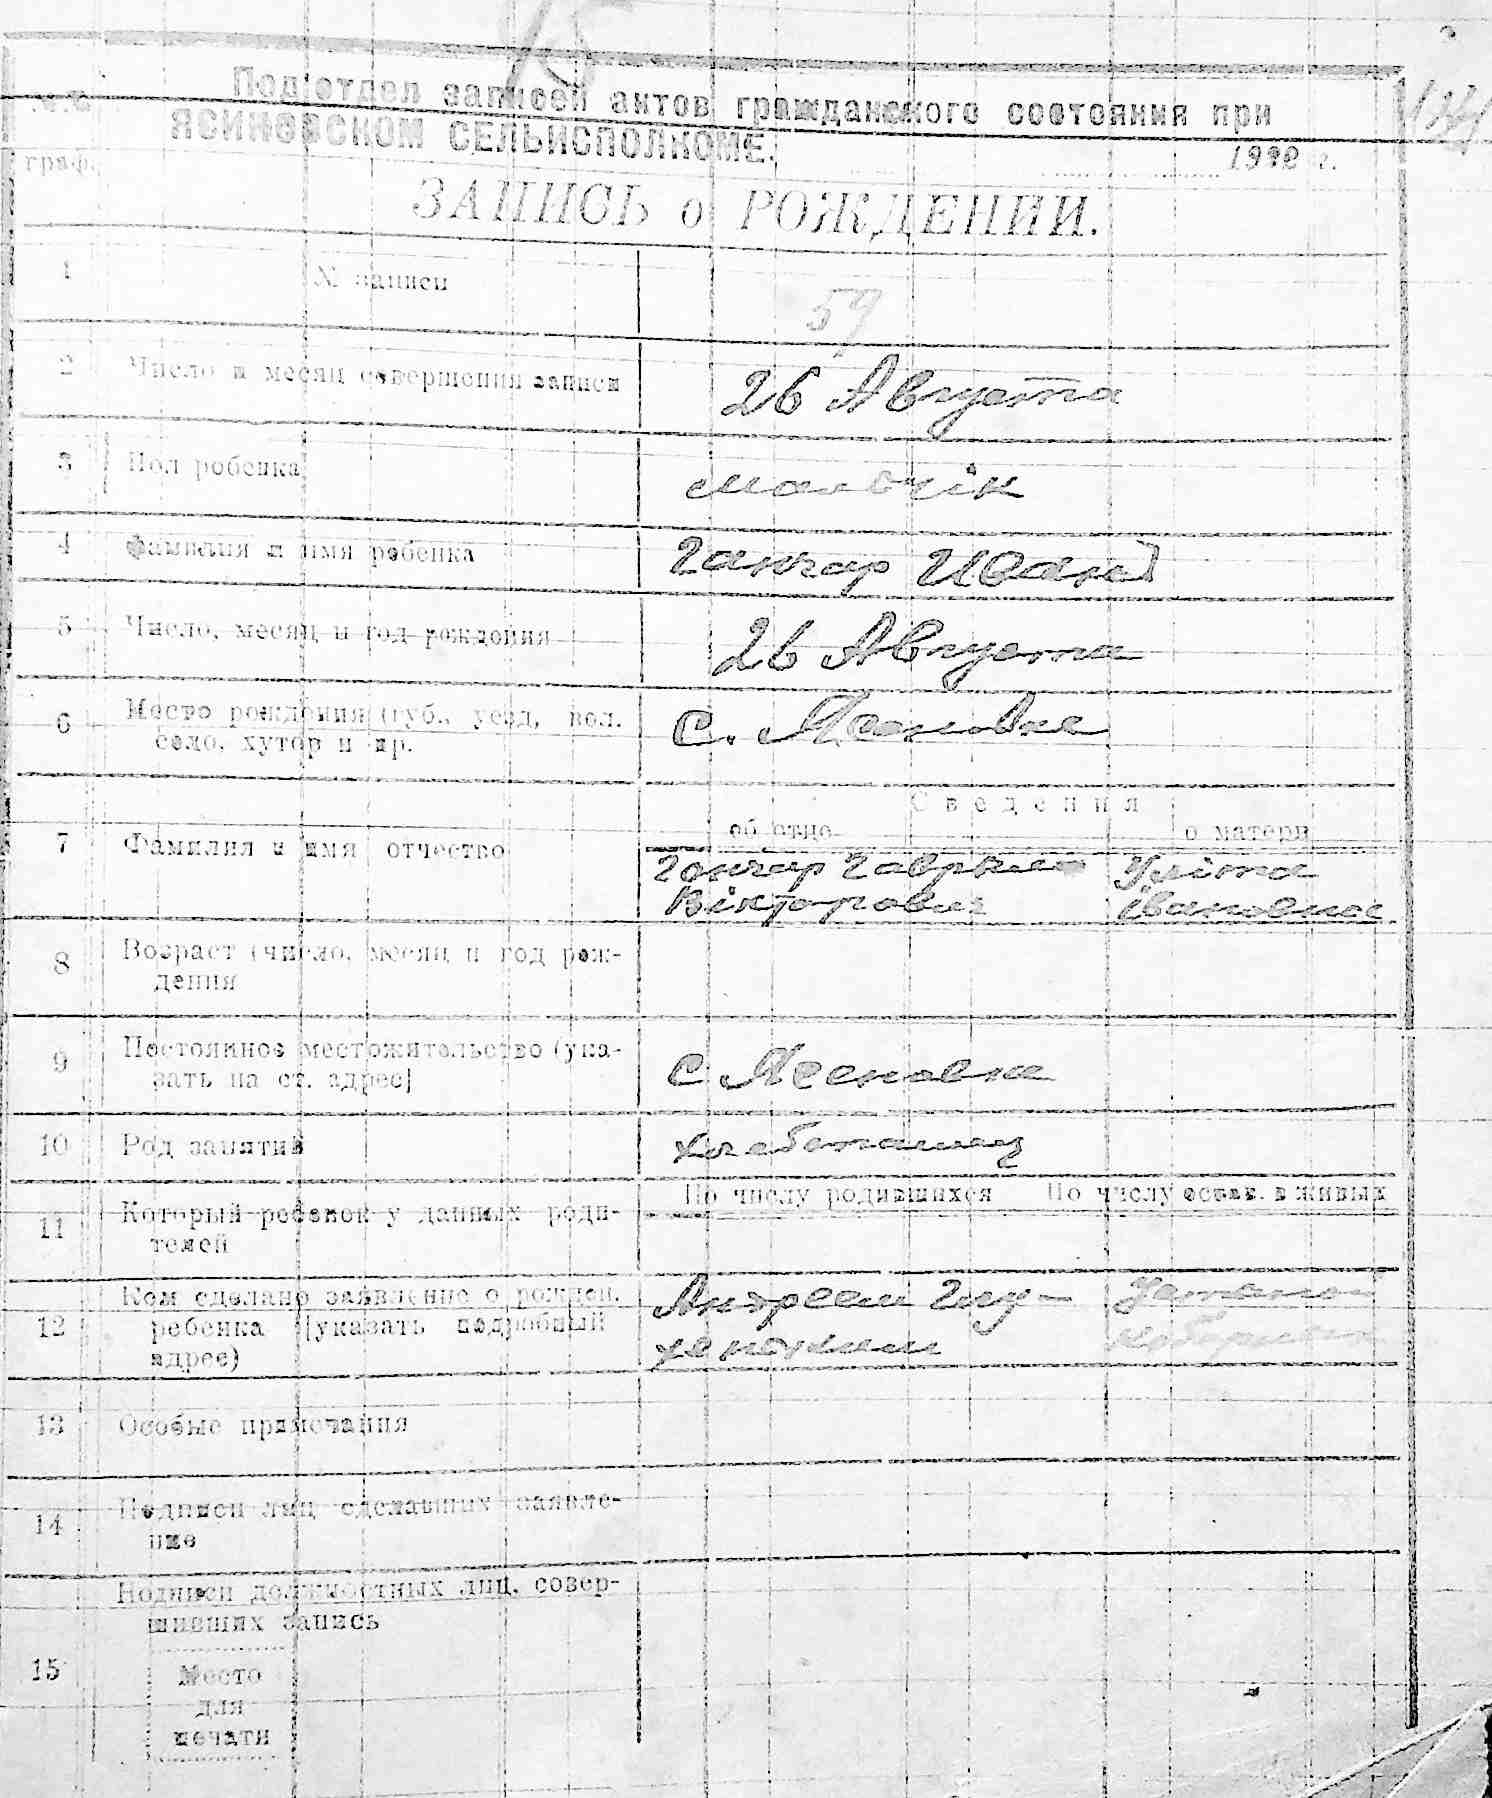 Подотдел записей актов гражданского состояния при
ЯСИНОВСКОМ СЕЛЬИСПОЛКОМЕ.
граф.
г.
ЗАПИСЬ о РОЖДЕНИИ.
1 № записи 59
2 Число и месяц совершения записи 26 Августа
3 Пол ребенка мальчік
4 Фамилия и имя ребенка Ганчар Иван
5 Число, месяц и год рождения 26 Августа
6 Место рождения (губ., уезд, вол.
село, хутор и пр. с.
Сведения
об отце о матери
7 Фамилия и имя отчество Гончар Гаврило Уліта
Вікторович Івановна
8 Возраст (число, месяц и год рож-
дения
9 Постоянное местожительство (ука-
зать на ст. адрес) с.
10 Род занятий хлебопашец
По числу родившихся По числу остав. в живых
11 Который ребенок у данных роди-
телей
12 Кем сделано заявление о рожден.
ребенка (указать подробный
адрес) Андреем
13 Особые примечания
14 Подписи лиц сделавших заявле-
ние
Подписи должностных лиц, совер-
шивших запись
15 Место
для
печати